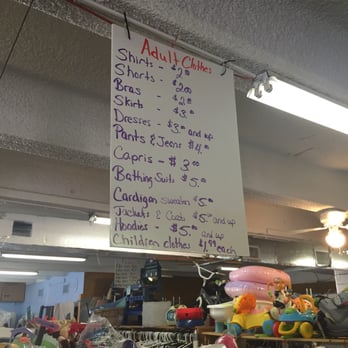 Adult Clothes
Shirts - $2.00
Shorts - $2.00
Bras - $2.00
Skirts - $3.00
Dresses - $3.00 and up
Pants & Jeans $4.00
Capris - $3.00
Bathing Suits $5.00
Cardigan sweaters $5.00
Jackets & Coats $5.00 and up
Hoodies - $5.00 and up
Children clothes $1.99 each